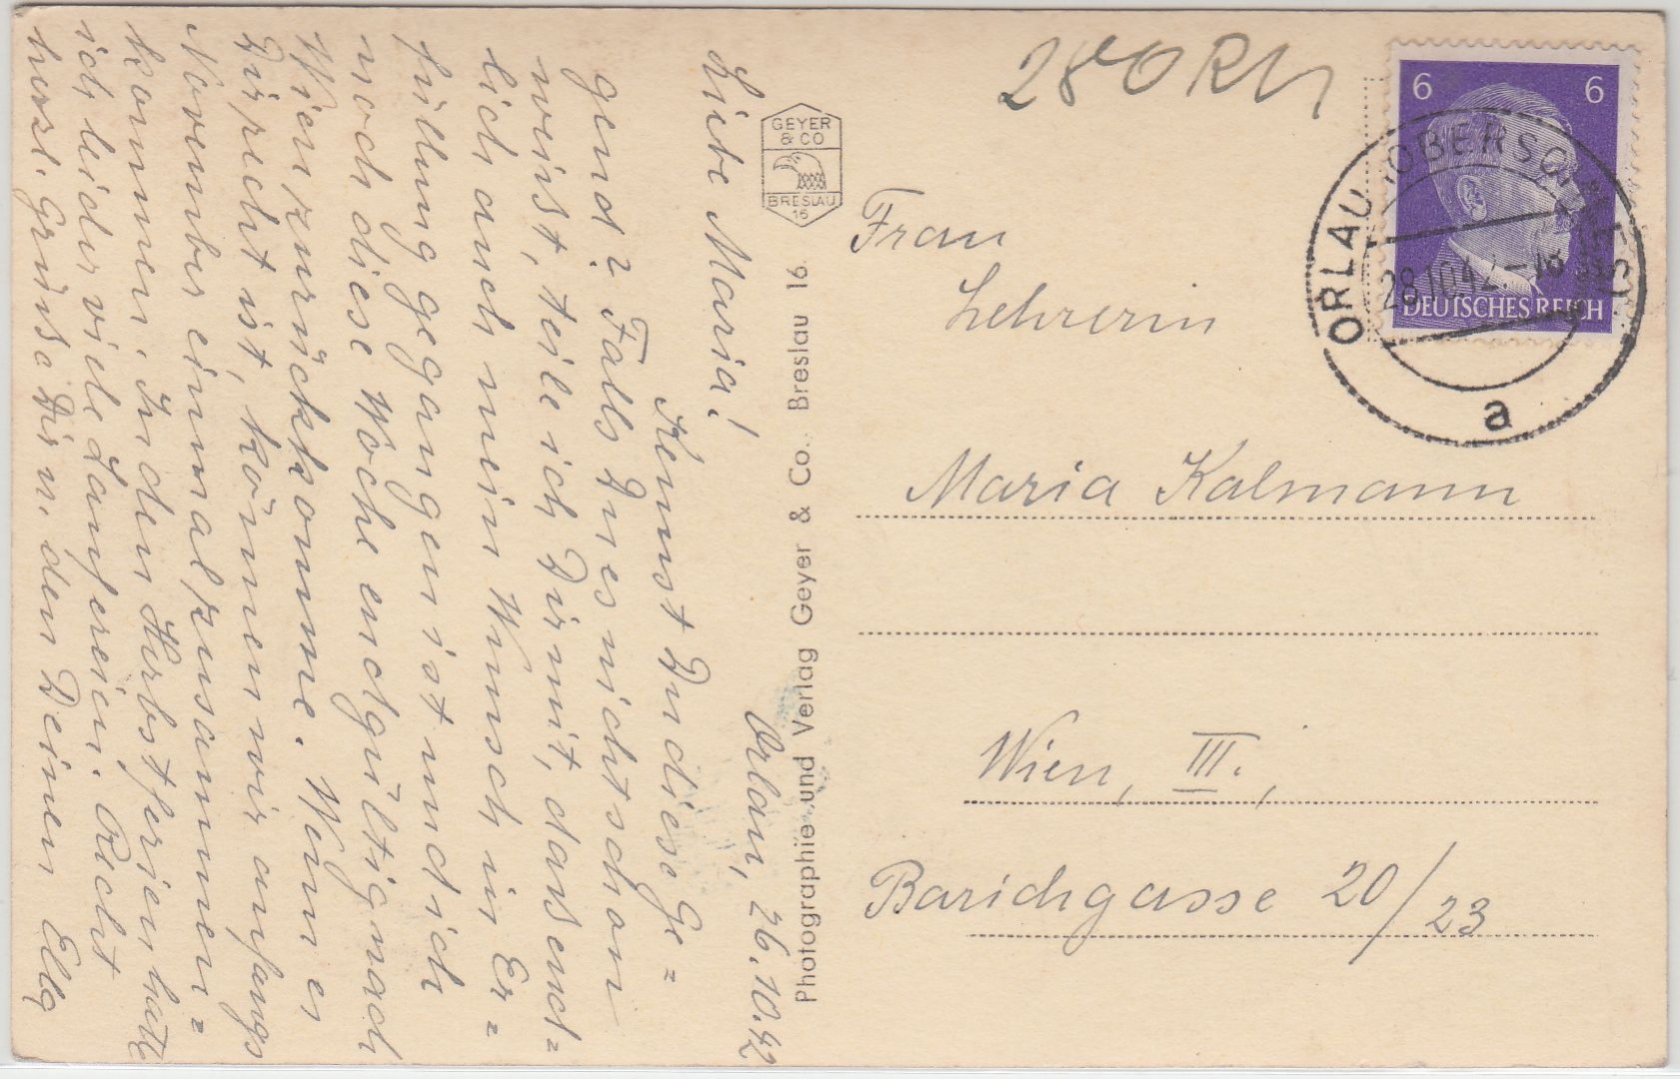 Orlau, 26.10.42
Liebe Maria!
Kennst Du diese Ge=
gend? Falls Du es nicht schon
weisst, teile ich Dir mit, dass end=
lich auch mein Wunsch in Er=
füllung gegangen ist und ich
noch diese Woche endgültig nach
Wien zurückkomme. Wenn es
Dir recht ist, können wir anfangs
November einmal zusammen=
kommen. In den Herbstferien hatte
ich leider viele Laufereien. Recht
herzl. Grüsse Dir u. den Deinen Ella
GEYER
& CO
BRESLAU
16
Photographie und Verlag Geyer & Co. Breslau 16
6 6
DEUTSCHES REICH
ORLAU (OBERSCHLES)
28.10.42.-18
a
Frau
Lehrerin
Maria Kalmann
Wien, III.,
Barichgasse 20/23